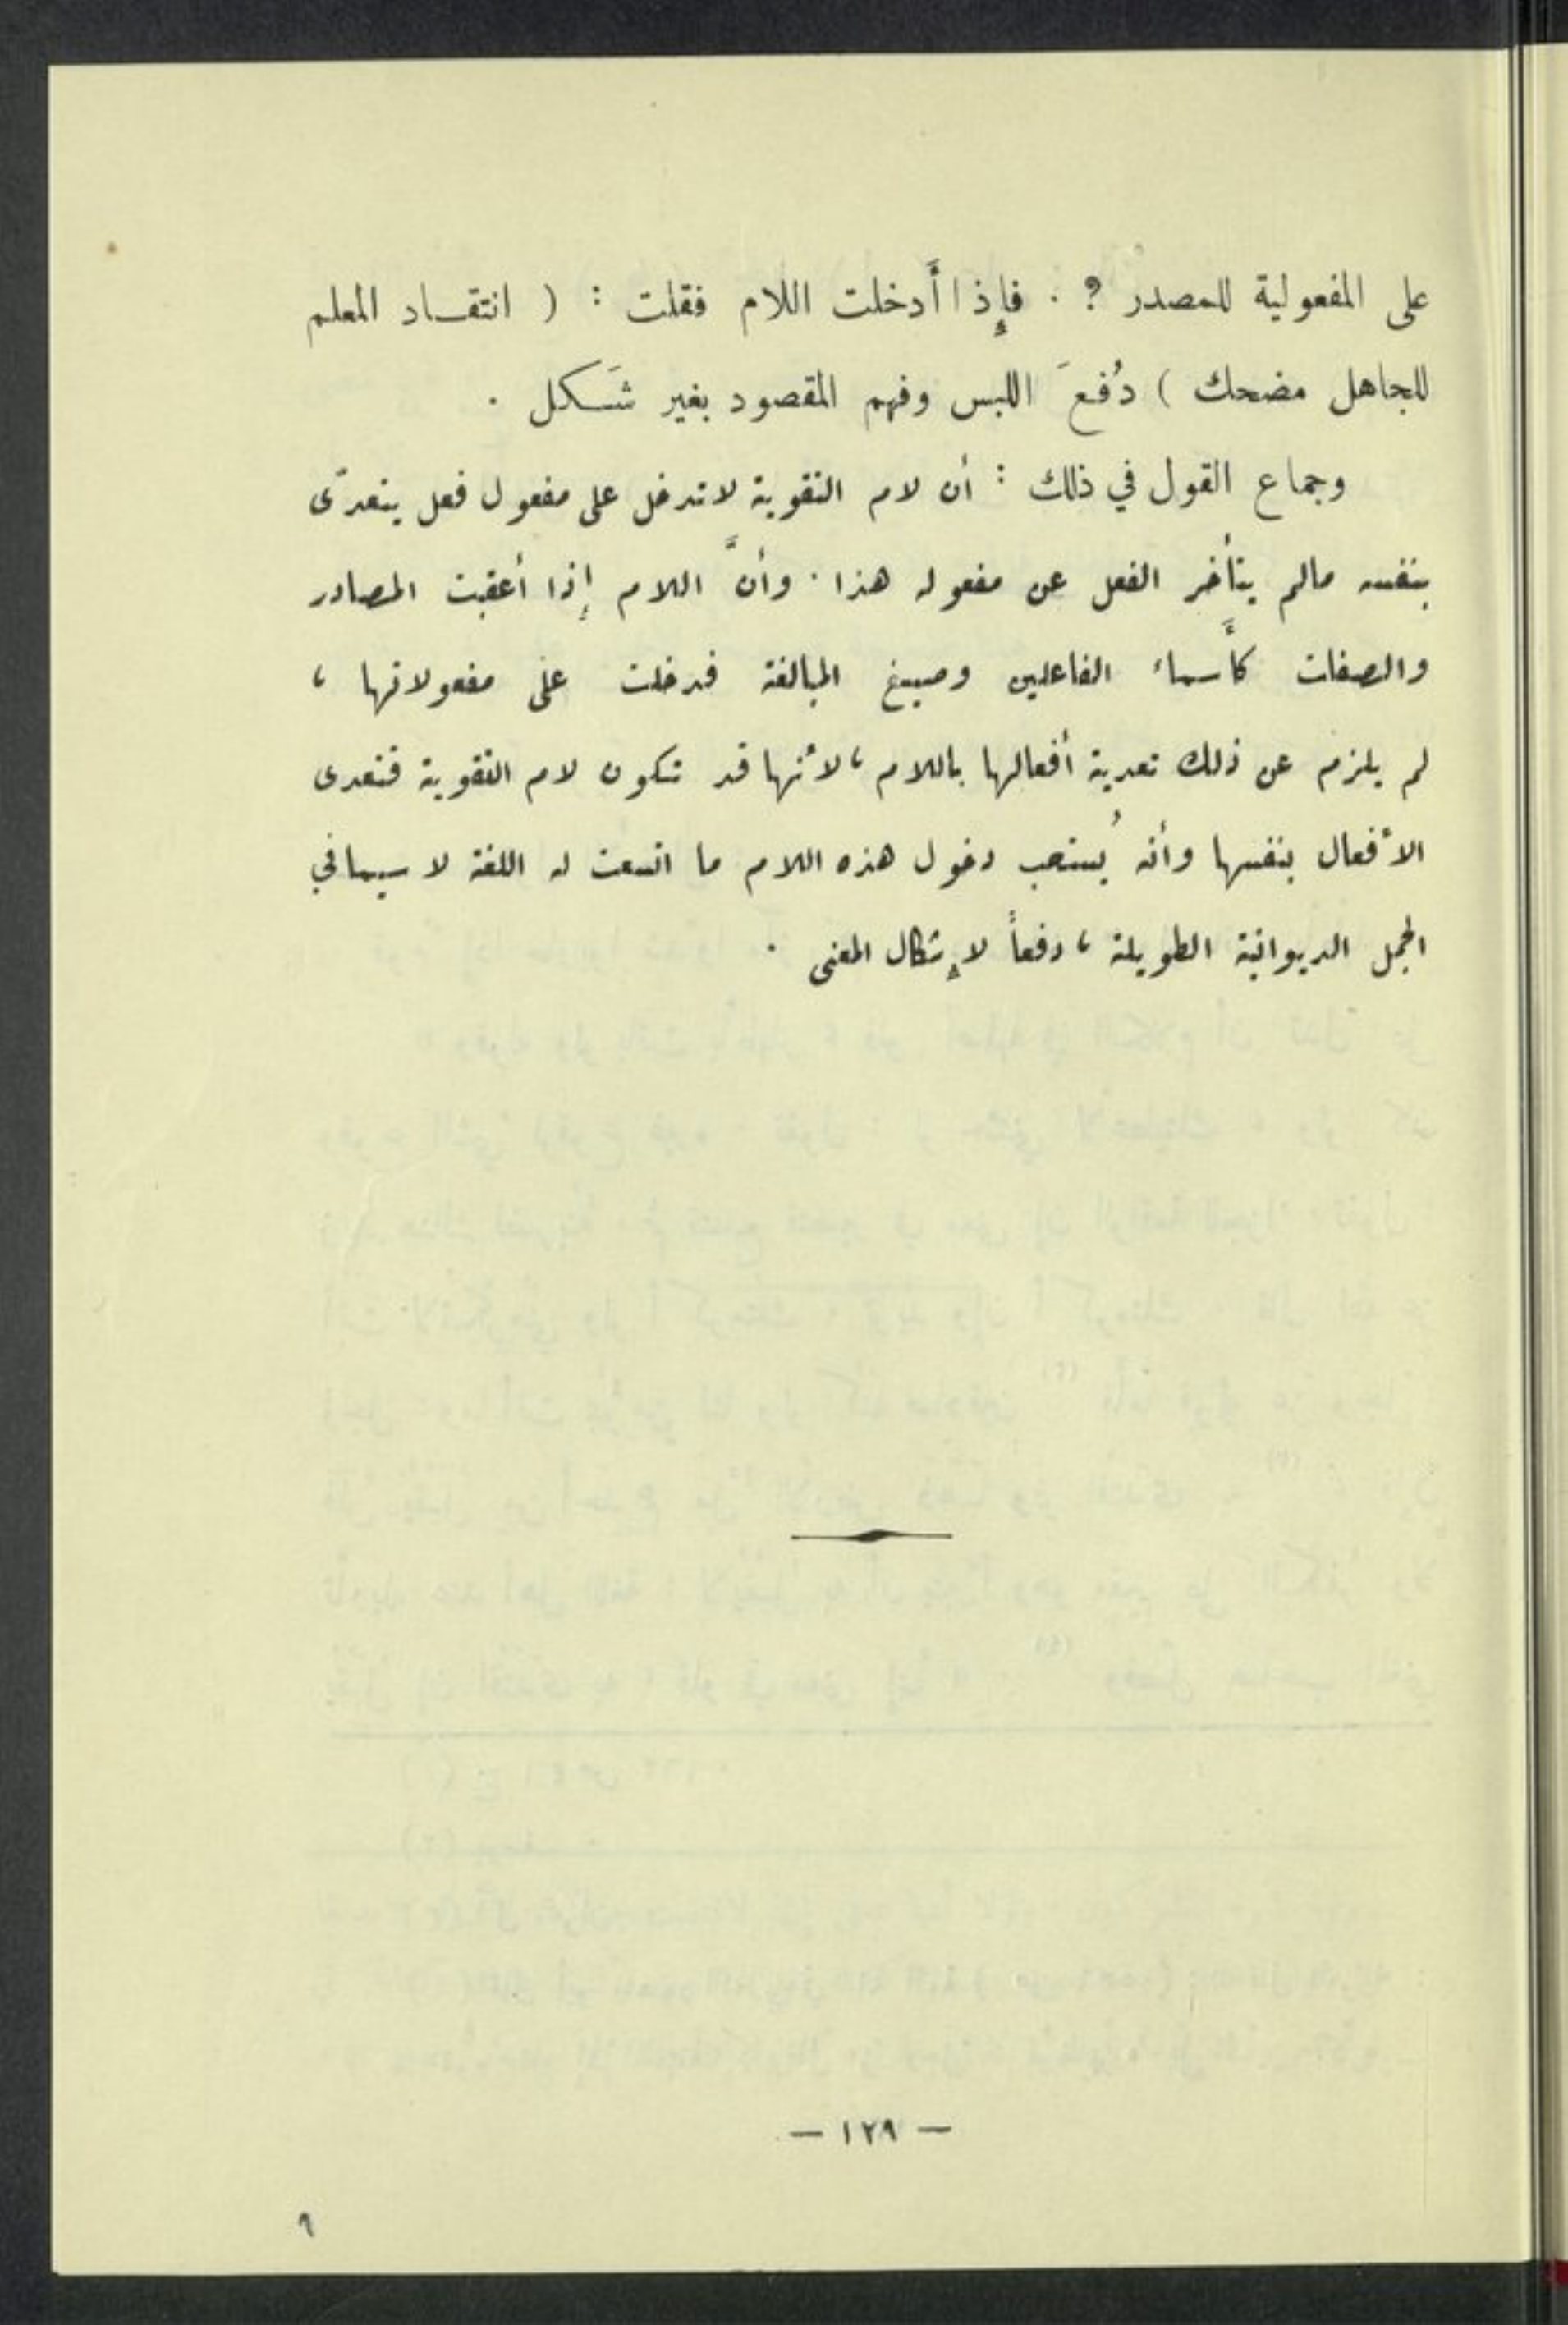 على المفعولية للمصدر ? . فإذا أَدخلت اللام فقلت : ( انتقـاد المعلم
للجاهل مضحك ) دُفعَ اللبس وفهم المقصود بغير شَـكل .
وجماع القول في ذلك : أن لام التقوية لا تدخل على مفعول فعل يتعدّى
بنفسه مالم يتأخر الفعل عن مفعوله هذا . وأنَّ اللام إذا أعقبت المصادر
والصفات كأَسماء الفاعلين وصيغ المبالغة فدخلت على مفعولاتها ،
لم يلزم عن ذلك تعدية أفعالها باللام ، لأنها قد تكون لام التقوية فتعدى
الأفعال بنفسها وأنه يُستحب دخول هذه اللام ما اتسعت له اللغة لا سيما في
الجمل الديوانية الطويلة ، دفعاً لإشكال المعنى .
— ١٢٩ —
٩